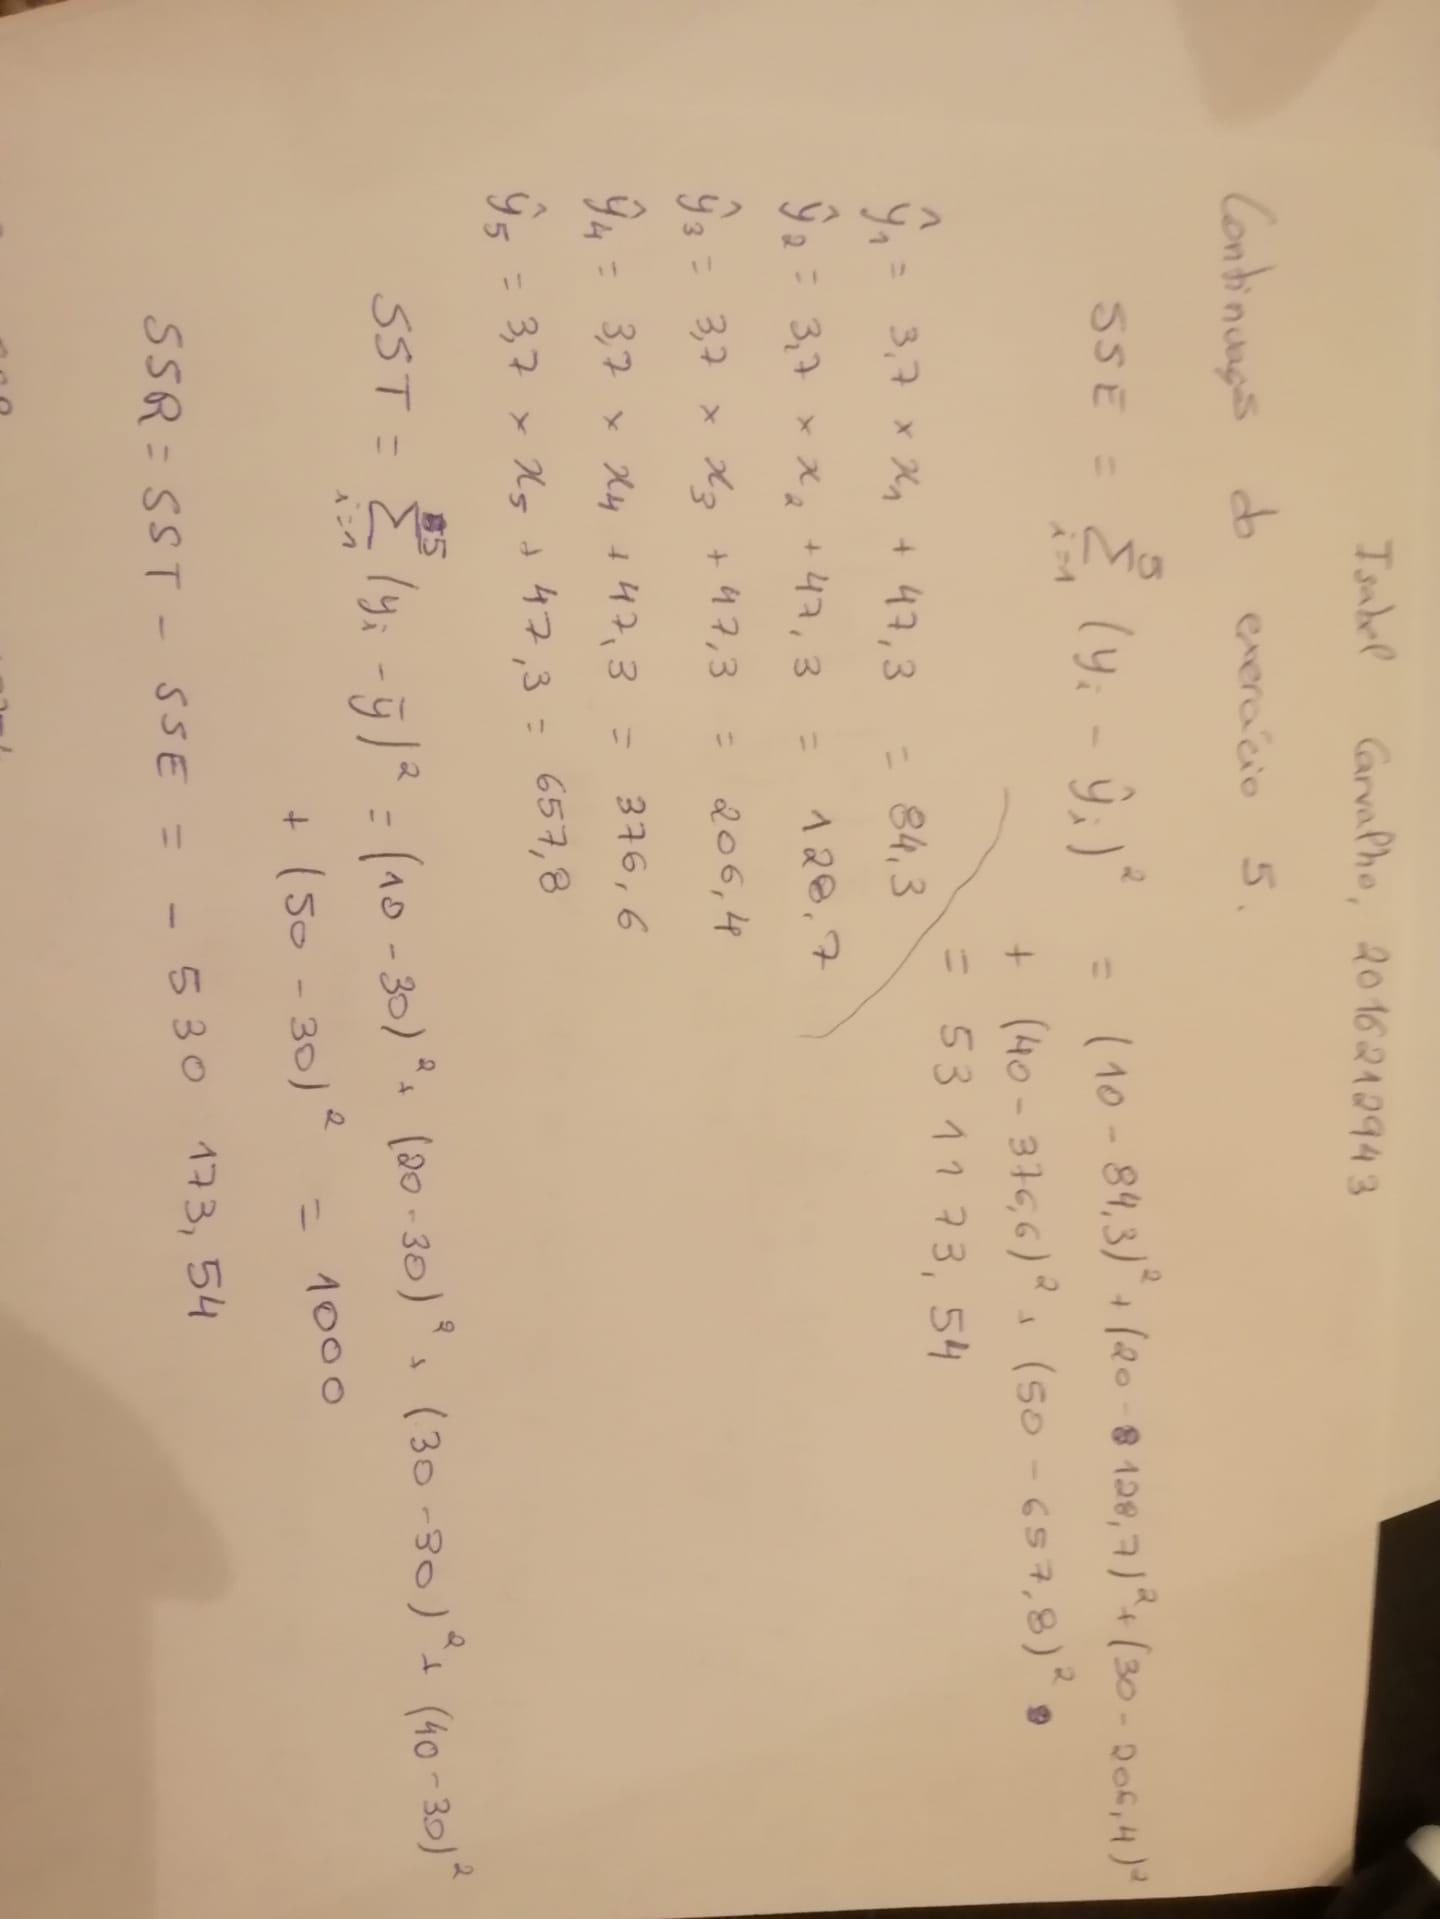 Isabel Carvalho, 2016212943
Continuação do exercício 5.
SSE = 5 Σ i=1 (yi - ŷi)² = (10 - 84,3)² + (20 - 128,7)² + (30 - 206,4)²
+ (40 - 376,6)² + (50 - 657,8)²
= 53 11 73, 54
ŷ1 = 3,7 × x1 + 47,3 = 84,3
ŷ2 = 3,7 × x2 + 47,3 = 128,7
ŷ3 = 3,7 × x3 + 47,3 = 206,4
ŷ4 = 3,7 × x4 + 47,3 = 376,6
ŷ5 = 3,7 × x5 + 47,3 = 657,8
SST = 5 Σ i=1 (yi - ȳ)² = (10 - 30)² + (20 - 30)² + (30 - 30)² + (40 - 30)²
+ (50 - 30)² = 1000
SSR = SST - SSE = - 530 173, 54